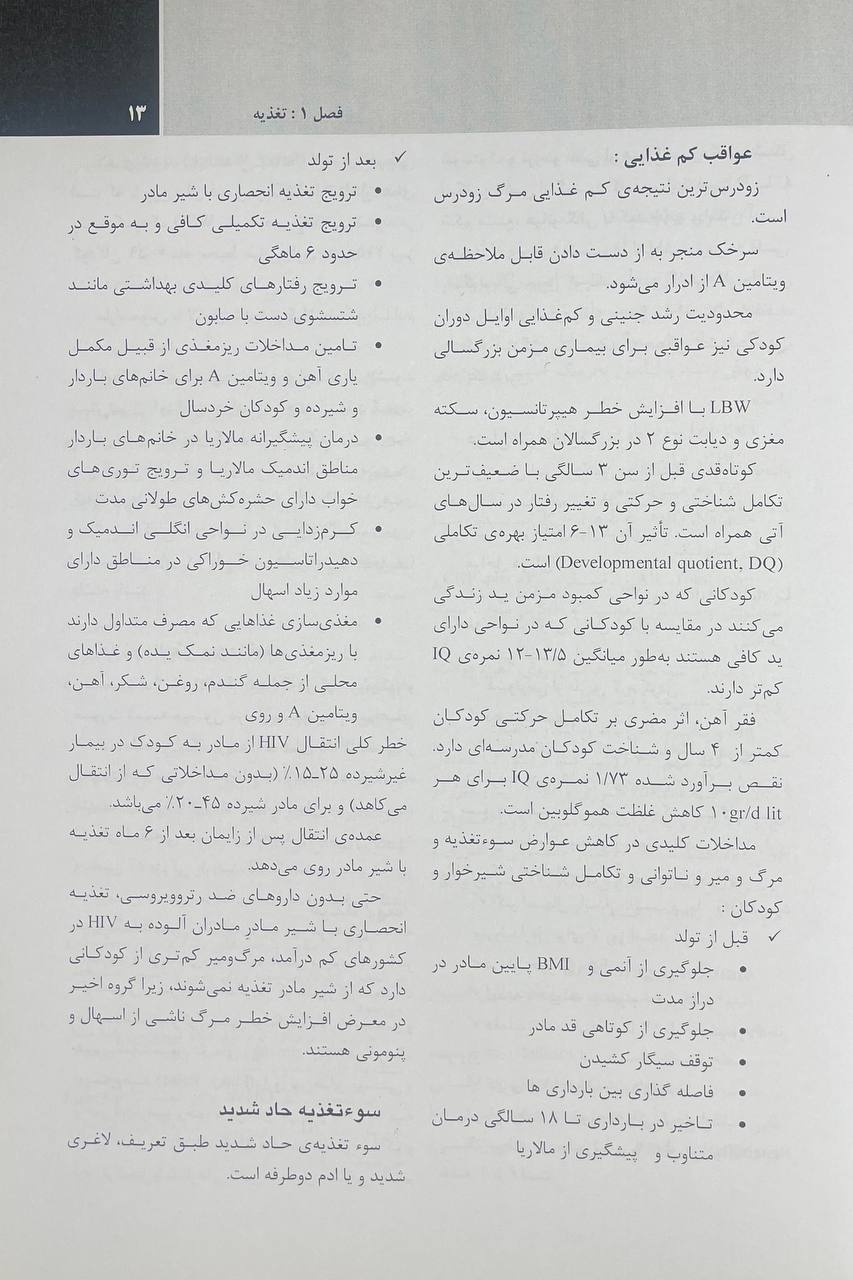 ۱۳
فصل ۱ : تغذیه
عواقب کم غذایی :
زودرس‌ترین نتیجه‌ی کم غذایی مرگ زودرس
است.
سرخک منجر به از دست دادن قابل ملاحظه‌ی
ویتامین A از ادرار می‌شود.
محدودیت رشد جنینی و کم‌غذایی اوایل دوران
کودکی نیز عواقبی برای بیماری مزمن بزرگسالی
دارد.
LBW با افزایش خطر هیپرتانسیون، سکته
مغزی و دیابت نوع ۲ در بزرگسالان همراه است.
کوتاه‌قدی قبل از سن ۳ سالگی با ضعیف‌ترین
تکامل شناختی و حرکتی و تغییر رفتار در سال‌های
آتی همراه است. تأثیر آن ۱۳-۶ امتیاز بهره‌ی تکاملی
(Developmental quotient, DQ) است.
کودکانی که در نواحی کمبود مزمن ید زندگی
می‌کنند در مقایسه با کودکانی که در نواحی دارای
ید کافی هستند به‌طور میانگین ۱۳/۵-۱۲ نمره‌ی IQ
کم‌تر دارند.
فقر آهن، اثر مضری بر تکامل حرکتی کودکان
کمتر از ۴ سال و شناخت کودکان مدرسه‌ای دارد.
نقص برآورد شده ۱/۷۳ نمره‌ی IQ برای هر
۱۰gr/d lit کاهش غلظت هموگلوبین است.
مداخلات کلیدی در کاهش عوارض سوءتغذیه و
مرگ و میر و ناتوانی و تکامل شناختی شیرخوار و
کودکان :
✓ قبل از تولد
• جلوگیری از آنمی و BMI پایین مادر در
دراز مدت
• جلوگیری از کوتاهی قد مادر
• توقف سیگار کشیدن
• فاصله گذاری بین بارداری ها
• تاخیر در بارداری تا ۱۸ سالگی درمان
متناوب و پیشگیری از مالاریا
✓ بعد از تولد
• ترویج تغذیه انحصاری با شیر مادر
• ترویج تغذیه تکمیلی کافی و به موقع در
حدود ۶ ماهگی
• ترویج رفتارهای کلیدی بهداشتی مانند
شتسشوی دست با صابون
• تامین مداخلات ریزمغذی از قبیل مکمل
یاری آهن و ویتامین A برای خانم‌های باردار
و شیرده و کودکان خردسال
• درمان پیشگیرانه مالاریا در خانم‌های باردار
مناطق اندمیک مالاریا و ترویج توری‌های
خواب دارای حشره‌کش‌های طولانی مدت
• کرم‌زدایی در نواحی انگلی اندمیک و
دهیدراتاسیون خوراکی در مناطق دارای
موارد زیاد اسهال
• مغذی‌سازی غذاهایی که مصرف متداول دارند
با ریزمغذی‌ها (مانند نمک یده) و غذاهای
محلی از جمله گندم، روغن، شکر، آهن،
ویتامین A و روی
خطر کلی انتقال HIV از مادر به کودک در بیمار
غیرشیرده ۲۵-۱۵٪ (بدون مداخلاتی که از انتقال
می‌کاهد) و برای مادر شیرده ۴۵-۲۰٪ می‌باشد.
عمده‌ی انتقال پس از زایمان بعد از ۶ ماه تغذیه
با شیر مادر روی می‌دهد.
حتی بدون داروهای ضد رتروویروسی، تغذیه
انحصاری با شیر مادرِ مادران آلوده به HIV در
کشورهای کم درآمد، مرگ‌ومیر کم‌تری از کودکانی
دارد که از شیر مادر تغذیه نمی‌شوند، زیرا گروه اخیر
در معرض افزایش خطر مرگ ناشی از اسهال و
پنومونی هستند.
سوءتغذیه حاد شدید
سوء تغذیه‌ی حاد شدید طبق تعریف، لاغری
شدید و یا ادم دوطرفه است.